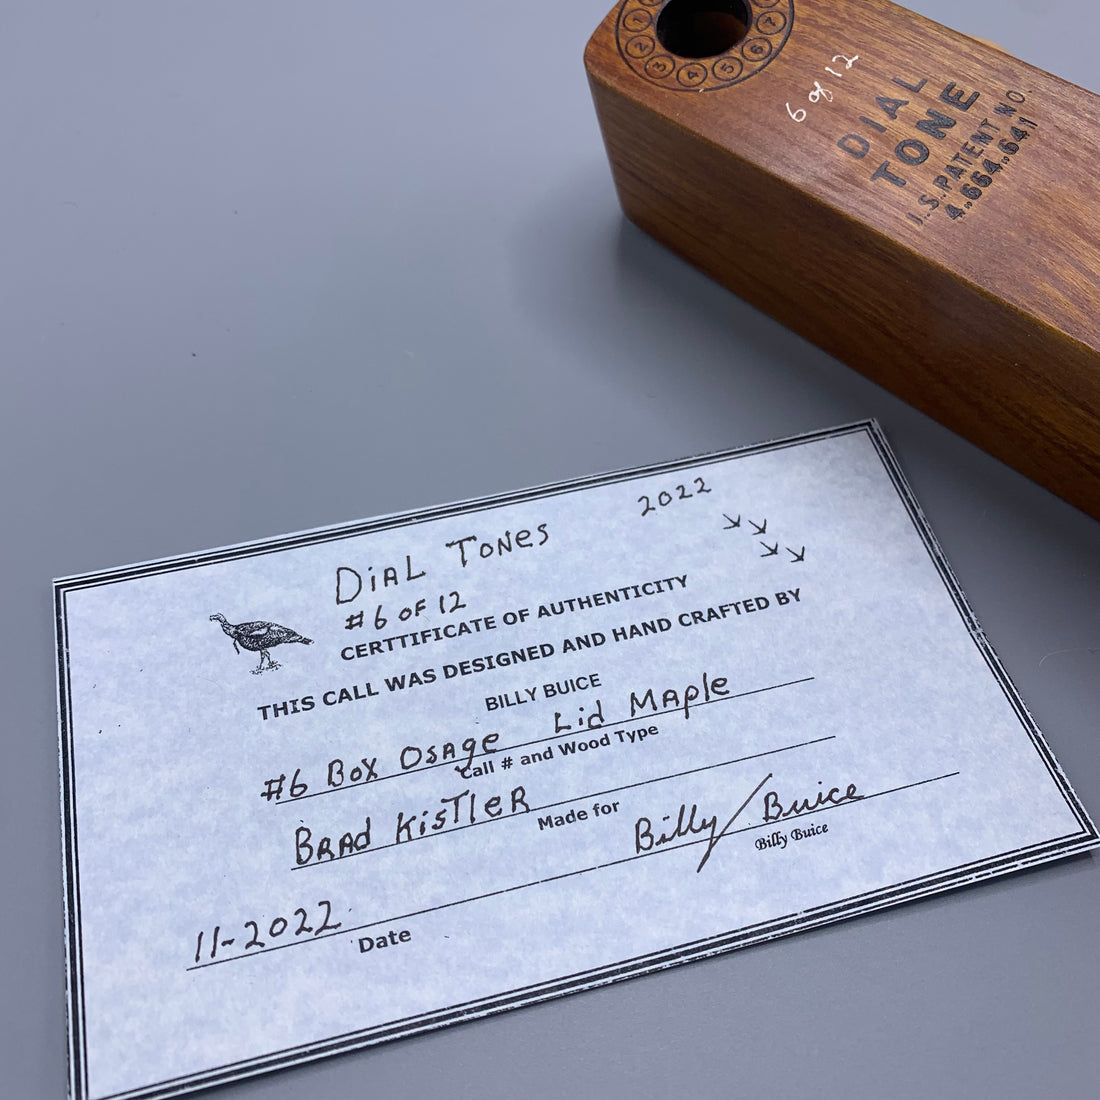 1
2
3
4
5
6
7
6 of 12
DIAL
TONE
U.S. PATENT NO.
4,664,641
2022
DiAL TONes
#6 OF 12
CERTTIFICATE OF AUTHENTICITY
THIS CALL WAS DESIGNED AND HAND CRAFTED BY
BILLY BUICE
#6 BOX OSAge Lid MAple
Call # and Wood Type
BRAd KisTleR
Made for
Billy Buice
Billy Buice
11-2022
Date